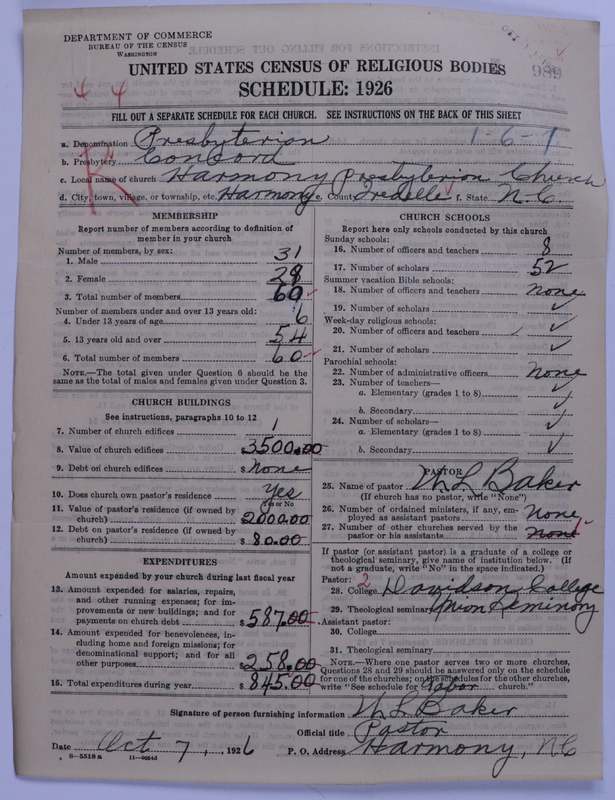 DEPARTMENT OF COMMERCE
BUREAU OF THE CENSUS
WASHINGTON
989
UNITED STATES CENSUS OF RELIGIOUS BODIES
SCHEDULE: 1926
4 4
FILL OUT A SEPARATE SCHEDULE FOR EACH CHURCH. SEE INSTRUCTIONS ON THE BACK OF THIS SHEET
a. Denomination Presbyterian 1-6-1
b. Presbytery Concord
c. Local name of church Harmony Presbyterian Church
d. City, town, village, or township, etc. Harmony e. County Iredell f. State N.C.
MEMBERSHIP
Report number of members according to definition of
member in your church
Number of members, by sex:
1. Male 31
2. Female 29
3. Total number of members 60
Number of members under and over 13 years old:
4. Under 13 years of age 6
5. 13 years old and over 54
6. Total number of members 60
NOTE.—The total given under Question 6 should be the
same as the total of males and females given under Question 3.
CHURCH BUILDINGS
See instructions, paragraphs 10 to 12
7. Number of church edifices 1
8. Value of church edifices $3500.00
9. Debt on church edifices $None
10. Does church own pastor's residence Yes
Yes or No
11. Value of pastor's residence (if owned by
church) $2000.00
12. Debt on pastor's residence (if owned by
church) $80.00
EXPENDITURES
Amount expended by your church during last fiscal year
13. Amount expended for salaries, repairs,
and other running expenses; for im-
provements or new buildings; and for
payments on church debt $587.00
14. Amount expended for benevolences, in-
cluding home and foreign missions; for
denominational support; and for all
other purposes $258.00
15. Total expenditures during year $845.00
CHURCH SCHOOLS
Report here only schools conducted by this church
Sunday schools:
16. Number of officers and teachers 8
17. Number of scholars 52
Summer vacation Bible schools:
18. Number of officers and teachers none
19. Number of scholars ✓
Week-day religious schools:
20. Number of officers and teachers ✓
21. Number of scholars ✓
Parochial schools:
22. Number of administrative officers none
23. Number of teachers—
a. Elementary (grades 1 to 8) ✓
b. Secondary ✓
24. Number of scholars—
a. Elementary (grades 1 to 8) ✓
b. Secondary ✓
PASTOR
25. Name of pastor W L Baker
(If church has no pastor, write "None")
26. Number of ordained ministers, if any, em-
ployed as assistant pastors None
27. Number of other churches served by the
pastor or his assistants none 1
If pastor (or assistant pastor) is a graduate of a college or
theological seminary, give name of institution below. (If
not a graduate, write "No" in the space indicated.)
Pastor: 2
28. College Davidson College
29. Theological seminary Union Seminary
Assistant pastor:
30. College
31. Theological seminary
NOTE.—Where one pastor serves two or more churches,
Questions 28 and 29 should be answered only on the schedule
for one of the churches; on the schedules for the other churches,
write "See schedule for Tabor church."
Signature of person furnishing information W L Baker
Official title Pastor
Date Oct 7, 1926 P. O. Address Harmony, NC
8-5518a 11-9664d